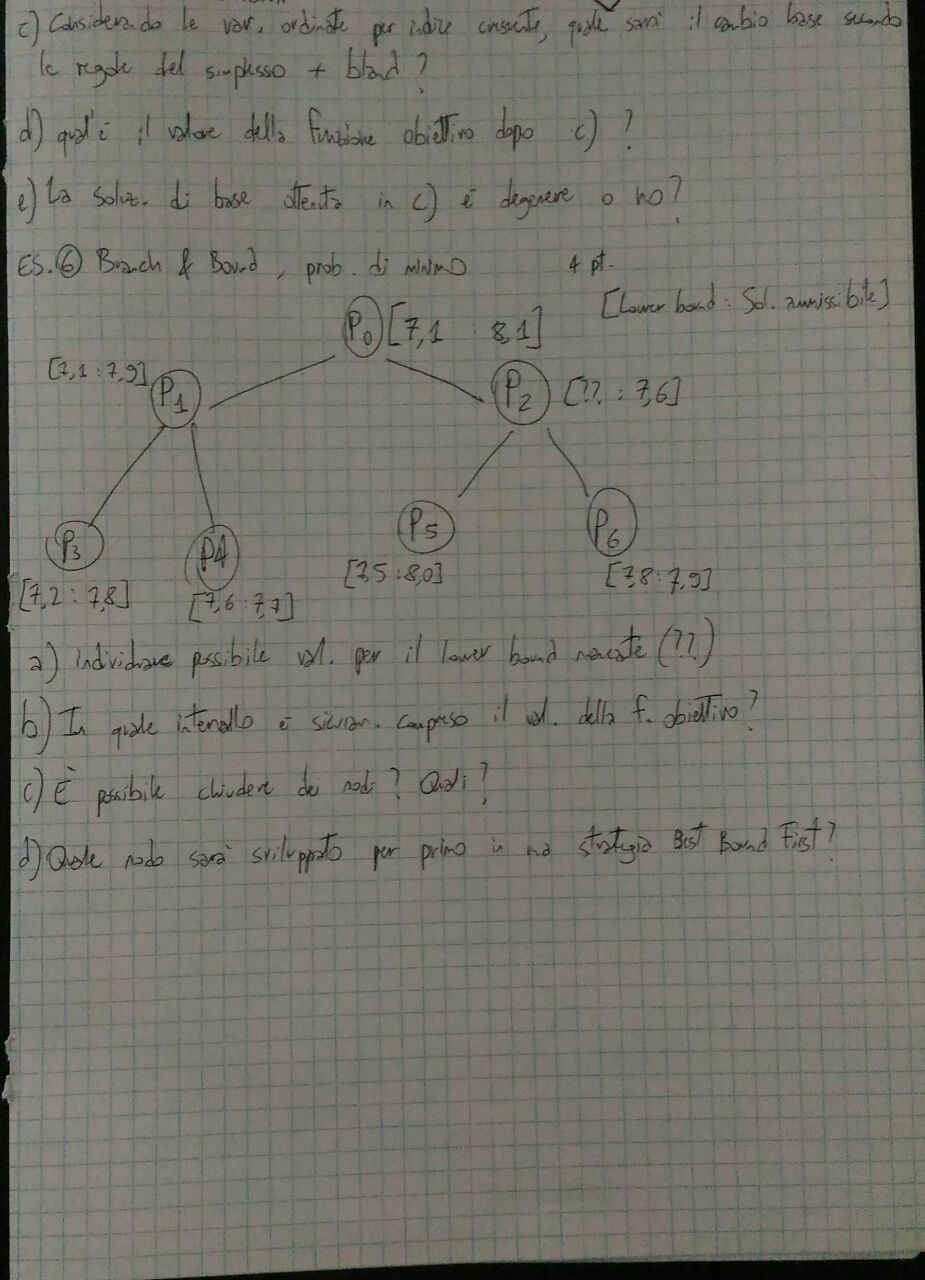 c) Considerando le var. ordinate per indice crescente, quale sarà il cambio base secondo
le regole del simplesso + bland ?
d) qual'è il valore della funzione obiettivo dopo c) ?
e) La soluz. di base ottenuta in c) è degenere o no?
ES. 6 Branch & Bound, prob. di minimo 4 pt.
[Lower bound : Sol. ammissibile]
P0 [7,1 : 8,1]
[7,1 : 7,9] P1 P2 [?? : 7,6]
P3 P4 P5 P6
[7,2 : 7,8] [7,6 : 7,7] [7,5 : 8,0] [7,8 : 7,9]
a) Individuare possibile val. per il lower bound mancate (??)
b) In quale intervallo è sicuram. compreso il val. della f. obiettivo?
c) È possibile chiudere dei nodi? Quali?
d) Quale nodo sarà sviluppato per primo in na strategia Best Bound First?